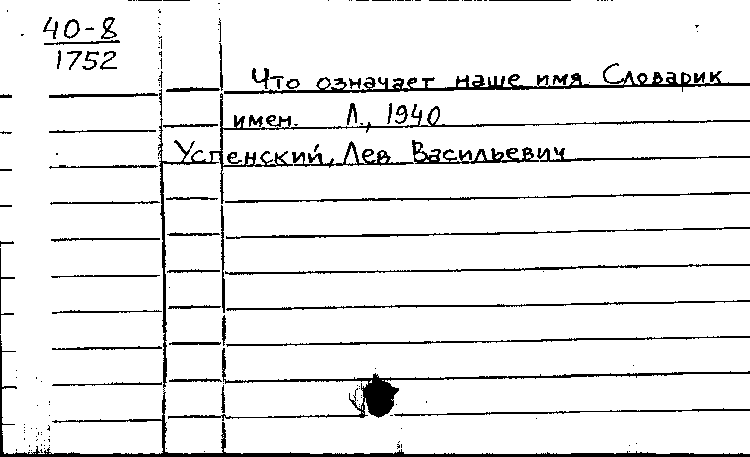 40-8
1752
Что означает наше имя Словарик
имен. Л., 1940
Успенский, Лев Васильевич